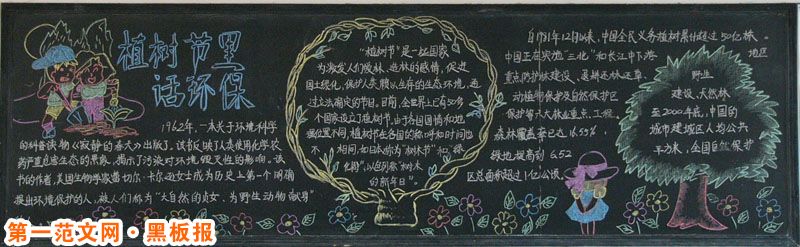 植树节里
话环保
1962年,一本关于环境科学
的科普读物《寂静的春天》出版了,该书反映了人类使用化学农
药严重危害生态的景象,揭示了污染对环境毁灭性的影响。该
书的作者,美国生物学家蕾切尔·卡尔逊女士成为历史上第一个明确
提出环境保护的人,被人们称为“大自然的贞女、为野生动物献身”
“植树节”是一些国家
为激发人们爱林、造林的感情,促进
国土绿化,保护人类赖以生存的生态环境,通
过立法确定的节日。目前,全世界上已有50多
个国家设立了植树节。由于各国国情和地
理位置不同,植树节在各国的称呼和时间也
不相同,如日本称为“树木节”和“绿
化周”,以色列称“树木
的新年日”。
自1981年12月以来,中国全民义务植树累计超过50亿株。
中国正在实施“三北”和长江中下游地区
重点防护林建设、退耕还林还草、
动植物保护及自然保护区
保护等六大林业重点工程,
森林覆盖率已达16.55%,
绿地提高到6.52
区总面积超1.1亿公顷。
野生
建设、天然林
至2000年底,中国的
城市建成区人均公共
平方米,全国自然保护
第一范文网·黑板报